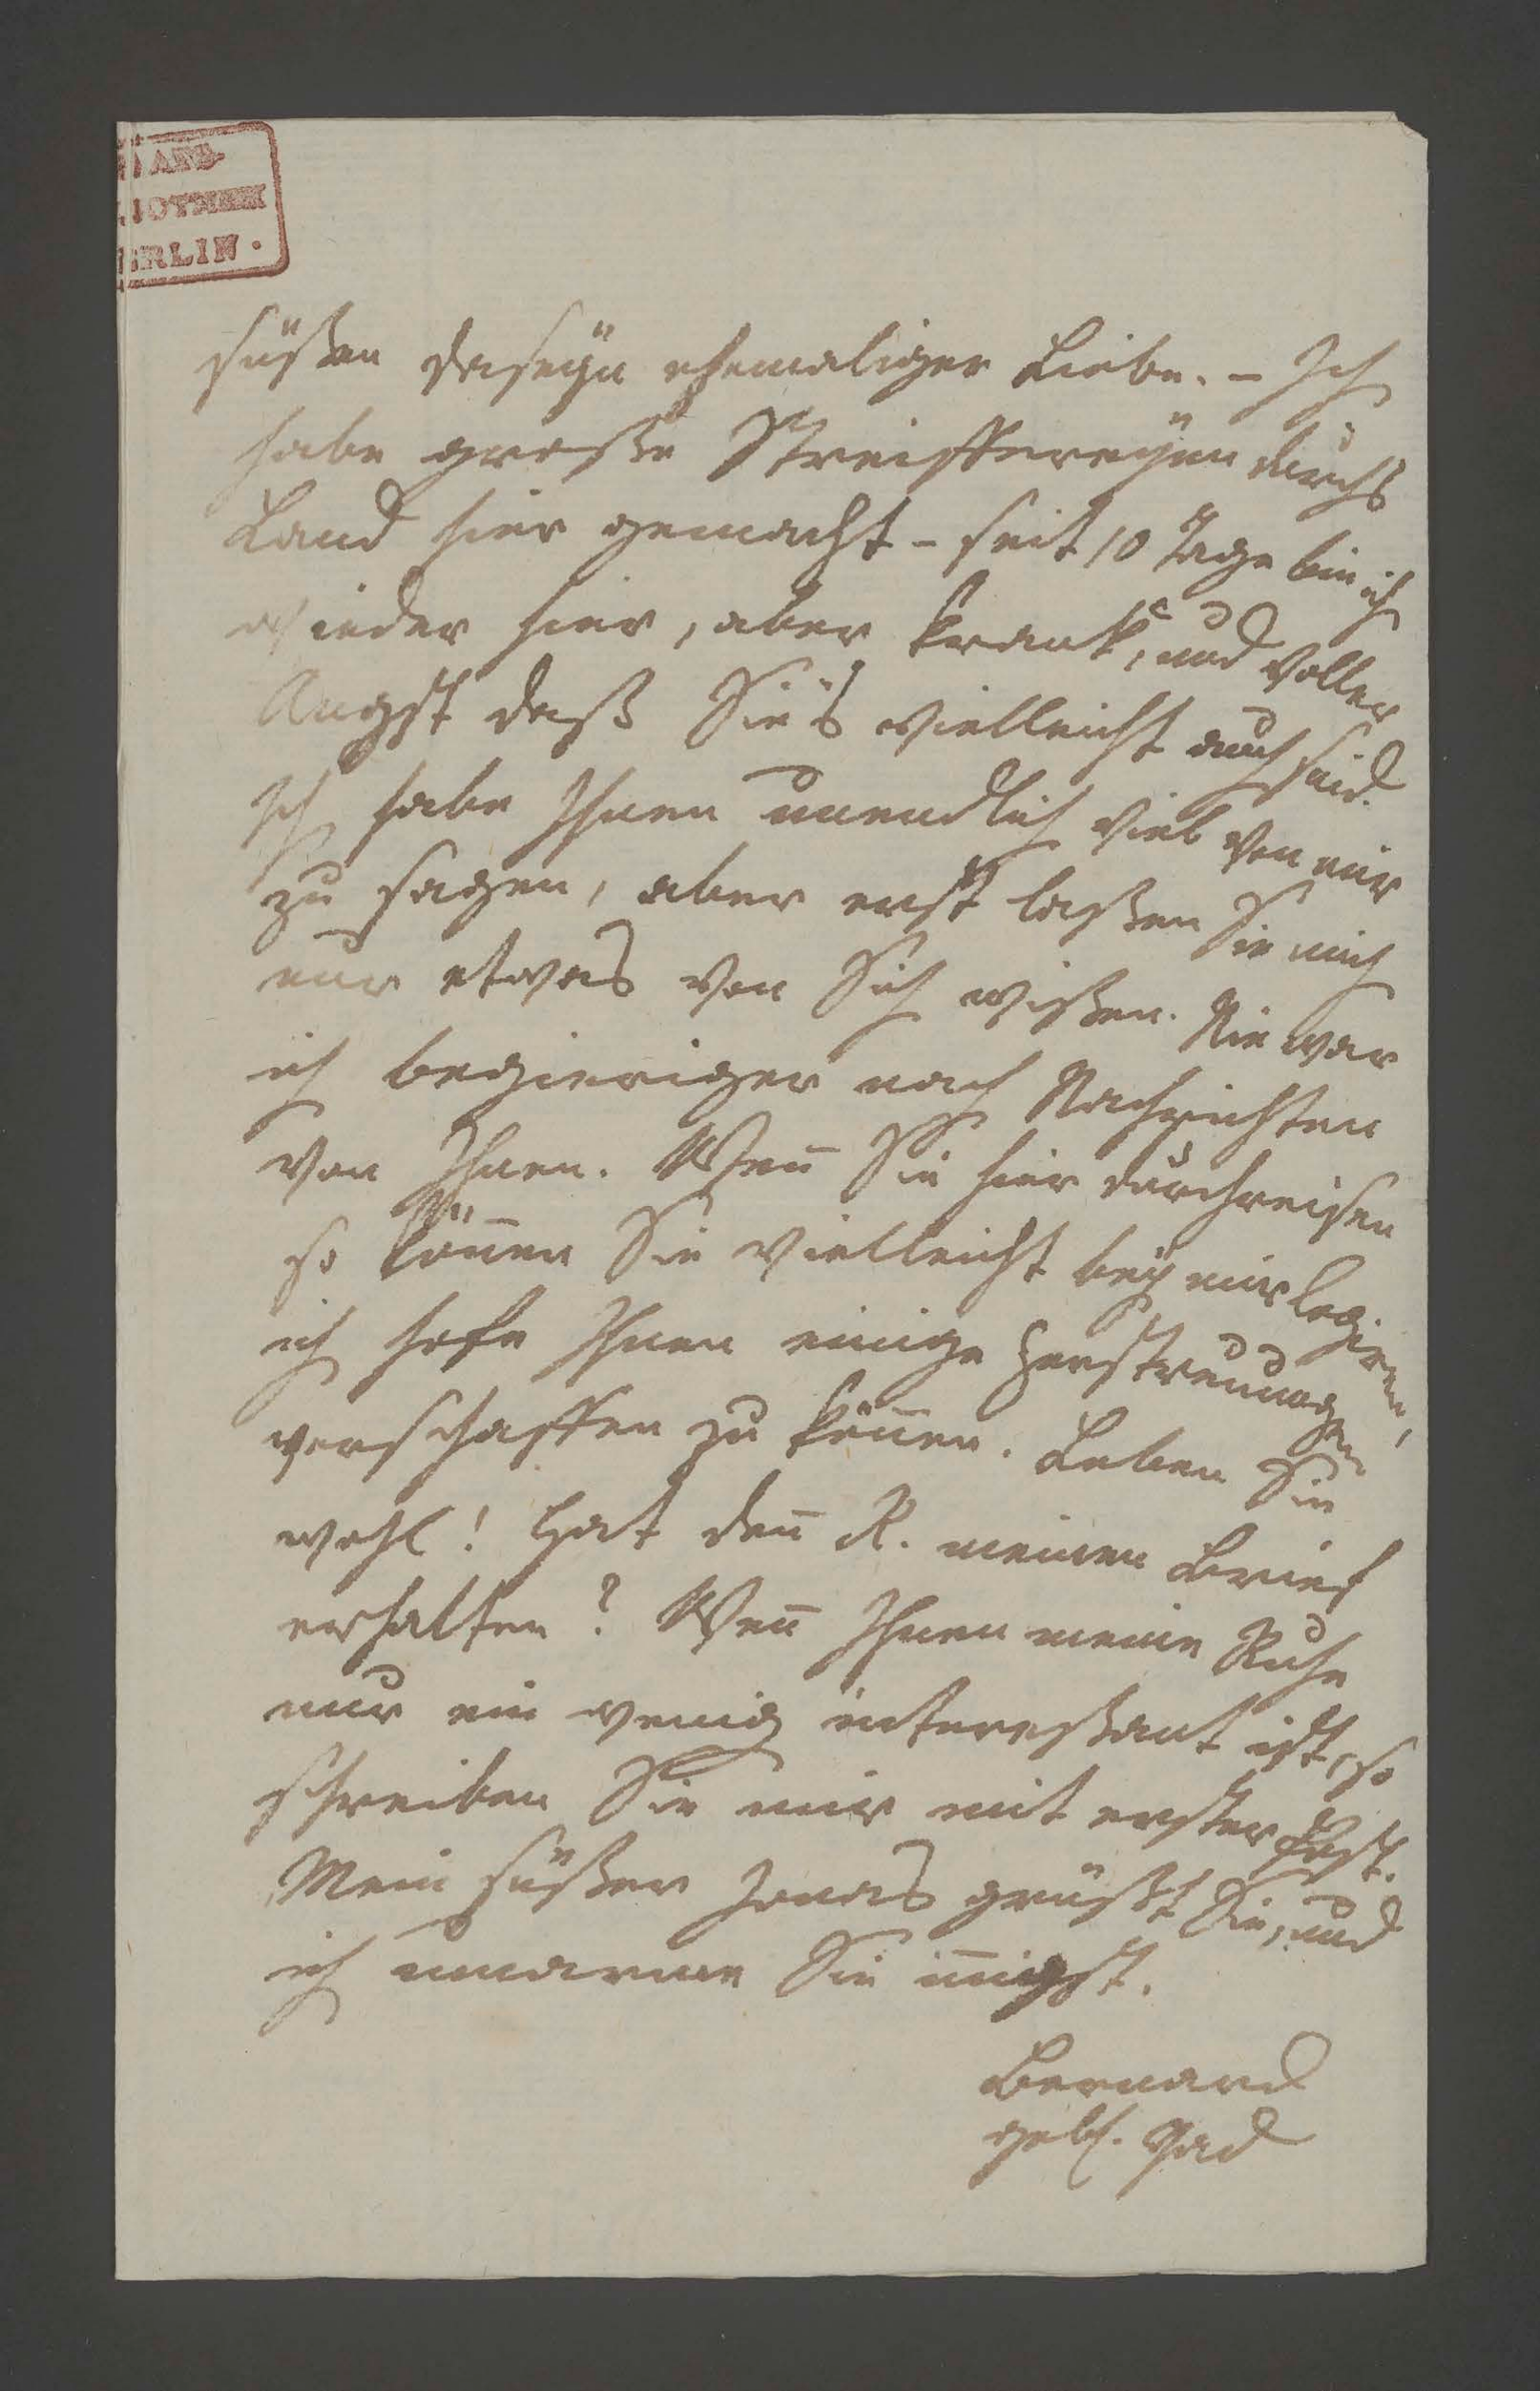 süßen daseÿn ehemaliger Liebe. – Ich
habe große Streiffereÿen durchs
Land hier gemacht – seit 10 Tage bin ich
wieder hier, aber krank, und voller
Angst daß Sie's vielleicht auch sind.
Ich habe Ihnen unendlich viel von mir
zu sagen, aber erst laßen Sie mich
nur etwas von Sich wißen. Nie war
ich begieriger nach Nachrichten
von Ihnen. Wen̅ Sie hier durchreisen
so kön̅en Sie vielleicht beÿ mir logiren,
ich hofe Ihnen einige Zerstreuungen
verschaffen zu kön̅en. Leben Sie
wohl! Hat den̅ R. meinen Brief
erhalten? Wen̅ Ihnen meine Ruhe
nur ein wenig intereßant ist, so
schreiben Sie mir mit erster Post.
Mein süßer Jonas grüßt Sie, und
ich umarme Sie in̅igst.
Bernard
geb. Gad
BERLIN.